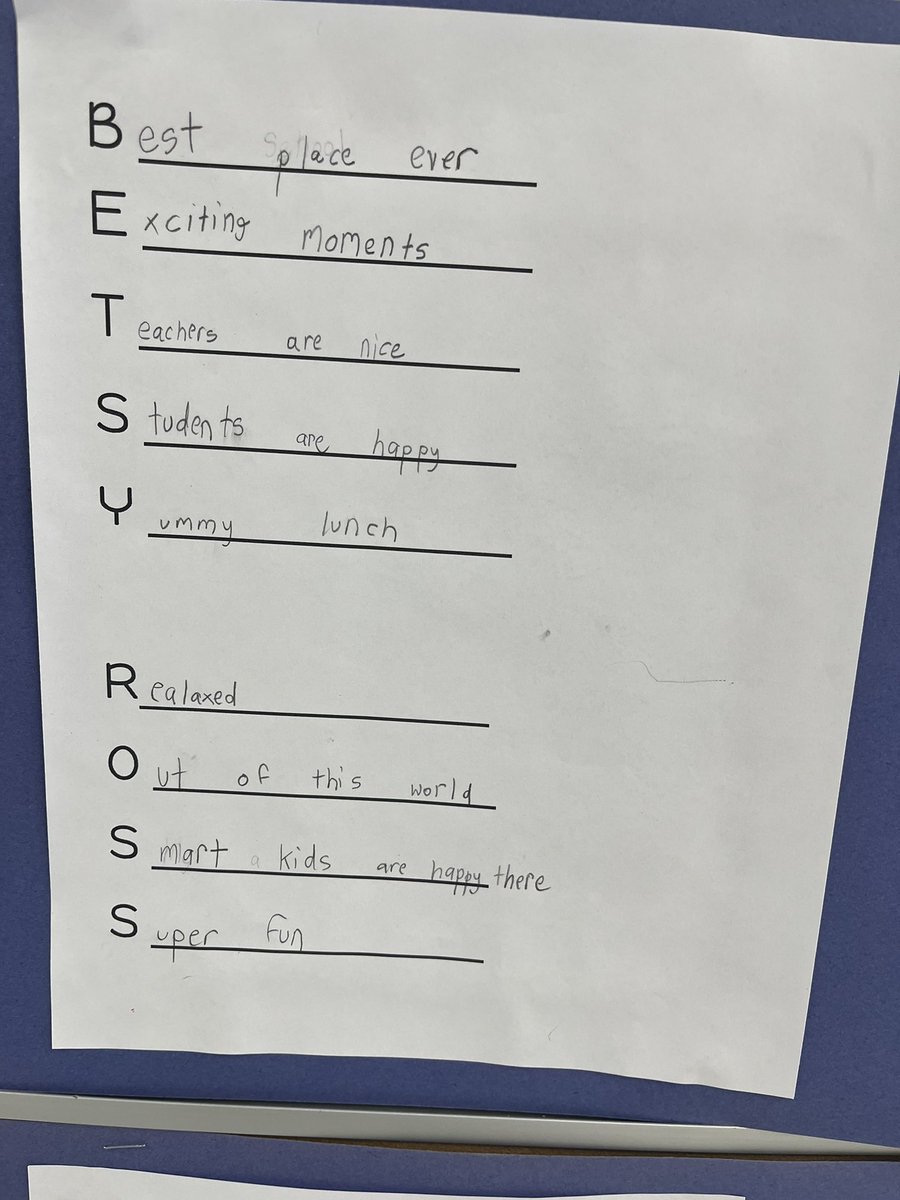 Best place ever
Exciting moments
Teachers are nice
Students are happy
Yummy lunch
Realaxed
Out of this world
Smart kids are happy there
Super fun